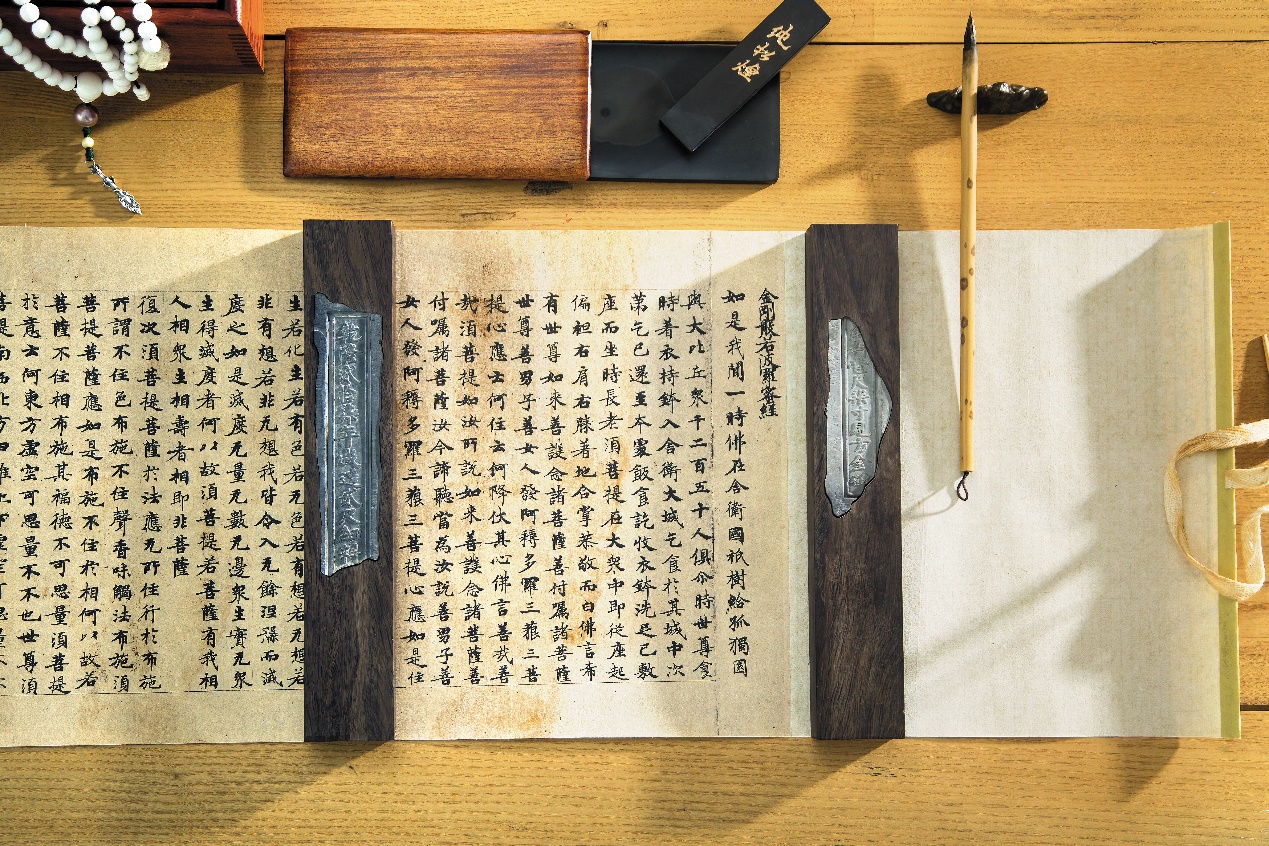 純松煙
金剛般若波羅蜜經
如是我聞一時佛在舍衛國祇樹給孤獨園
與大比丘眾千二百五十人俱尒時世尊食
時著衣持鉢入舍衛大城乞食於其城中次
第乞已還至本處飯食訖收衣鉢洗足已敷
座而坐時長老須菩提在大眾中即從座起
偏袒右肩右膝著地合掌恭敬而白佛言希
有世尊如来善護念諸菩薩善付囑諸菩薩
世尊善男子善女人發阿耨多羅三藐三菩
提心應云何住云何降伏其心佛言善哉善
哉須菩提如汝所說如来善護念諸菩薩善
付囑諸菩薩汝今諦聽當為汝說善男子善
女人發阿耨多羅三藐三菩提心應如是住
生若化生若有色若无色若有想若无想若
非有想若非无想我皆令入无餘涅槃而滅
度之如是滅度无量无數无邊眾生實无眾
生得滅度者何以故須菩提若菩薩有我相
人相眾生相壽者相即非菩薩
復次須菩提菩薩於法應无所住行於布施
所謂不住色布施不住聲香味觸法布施須
菩提菩薩應如是布施不住於相何以故若
菩薩不住相布施其福德不可思量須菩提
於意云何東方虛空可思量不不也世尊須